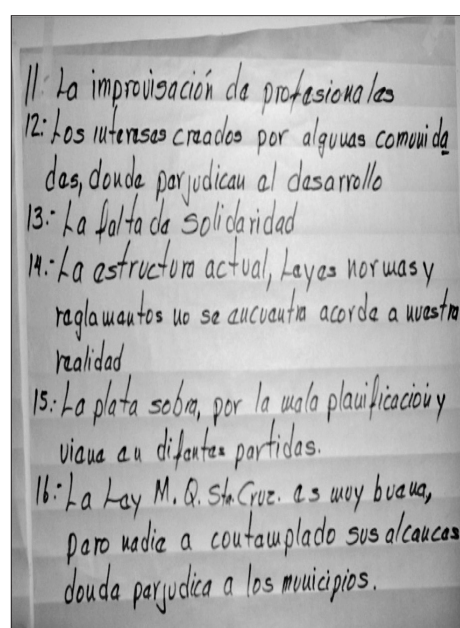 11.- La improvisación de profesionales
12.- Los intereses creados por algunas comunida
des, donde perjudican al desarrollo
13.- La falta de solidaridad
14.- La estructura actual, Leyes normas y
reglamentos no se encuentra acorde a nuestra
realidad
15.- La plata sobra, por la mala planificación y
viene en difentes partidas.
16.- La Ley M. Q. Sta. Cruz. es muy buena,
pero nadie a contemplado sus alcances
donde perjudica a los municipios.